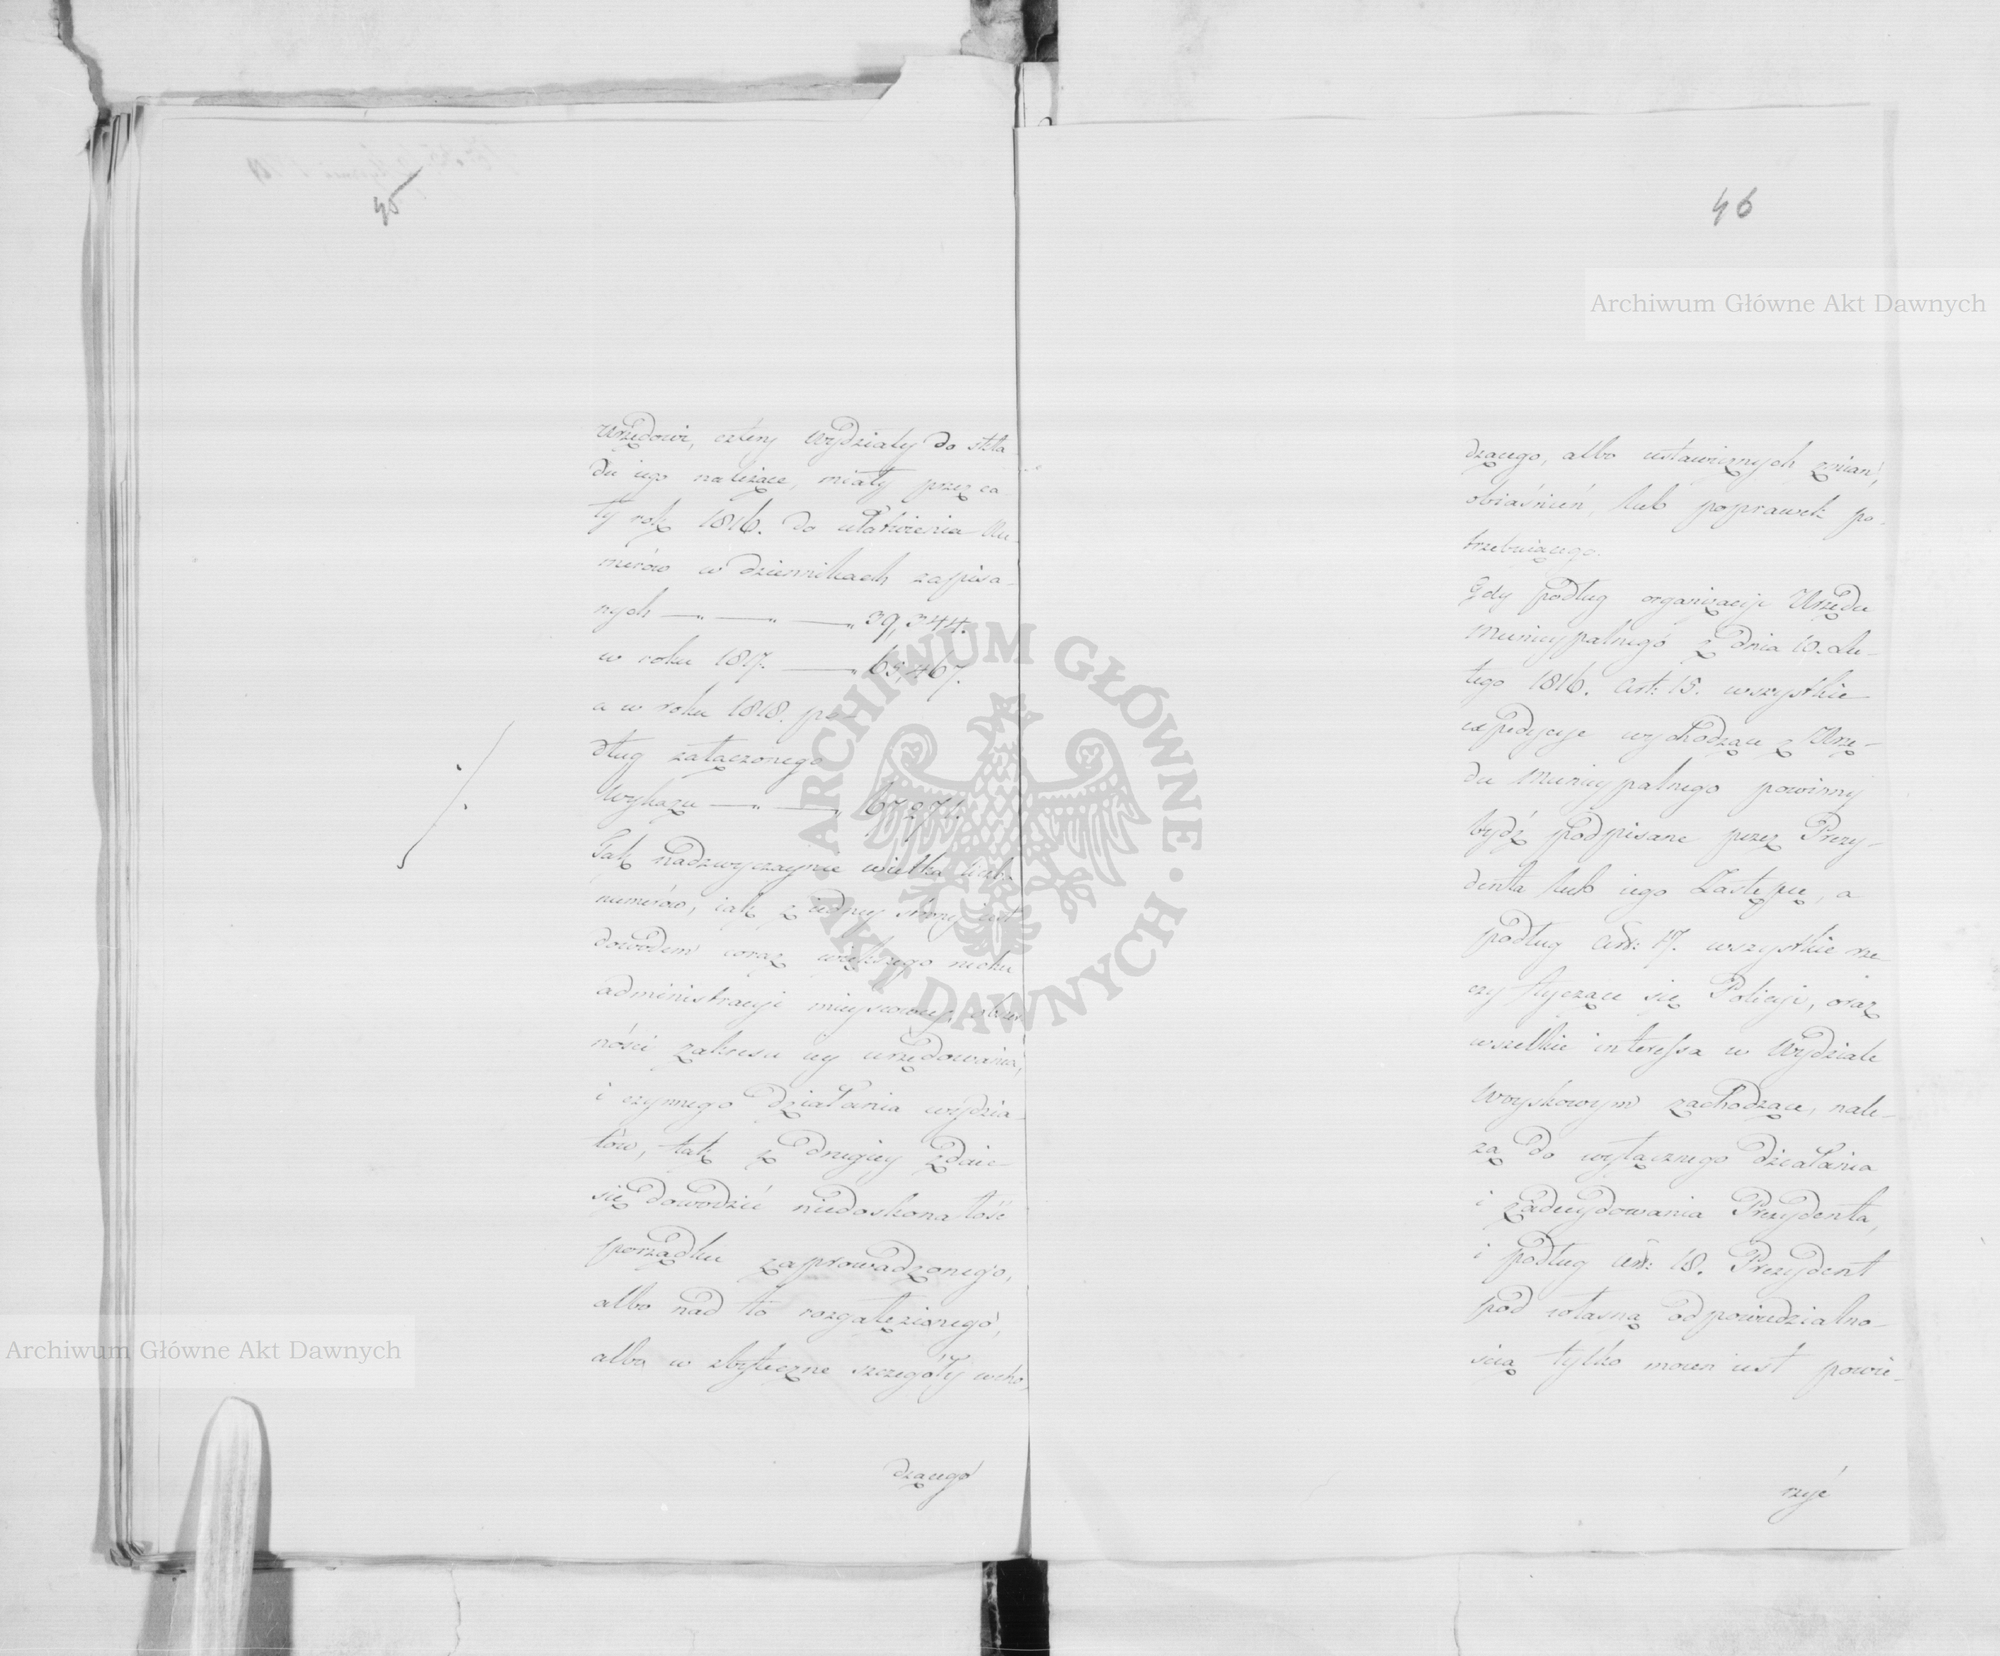 45
Urzędowi, cztery Wydziały do skła
du iego należące, miały przez ca-
ły rok 1816. do ułatwienia Nu-
merów w dziennikach zapisa-
nych —„—„—„ 39,344.
w roku 1817. —„ 65,467.
a w roku 1818. po-
dług załączonego
Wykazu —„—„ 67,271.
Tak nadzwyczaynie wielka liczba
numerów, iak z iedney strony iest
dowodem coraz większego ruchu
administracyi mieyscowey, obszer
ności zakresu iey urzędowania,
i czynnego działania wydzia-
łów, tak z drugiey zdaie
się dowodzić niedoskonałość
porządku zaprowadzonego,
albo nad to rozgałęzionego,
albo w zbyteczne szczegóły wcho-
dzącego
46
dzącego, albo ustawicznych zmian,
obiaśnień, lub poprawek po-
trzebuiącego.
Gdy podług organizacyi Urzędu
Municypalnego z dnia 10. Lu-
tego 1816. Art: 15. wszystkie
expedycye wychodzące z Urzę-
du Municypalnego powinny
bydź podpisane przez Prezy-
denta lub iego Zastępcę, a
podług Art: 17. wszystkie rze
czy tyczące się Policyi, oraz
wszelkie interessa w Wydziale
Woyskowym zachodzące, nale-
żą do wyłącznego działania
i zadecydowania Prezydenta,
i podług Art: 18. Prezydent
pod własną odpowiedzialno-
ścią tylko mocen iest powie-
rzyć
Archiwum Główne Akt Dawnych
Archiwum Główne Akt Dawnych
ARCHIWUM GŁÓWNE
AKT DAWNYCH